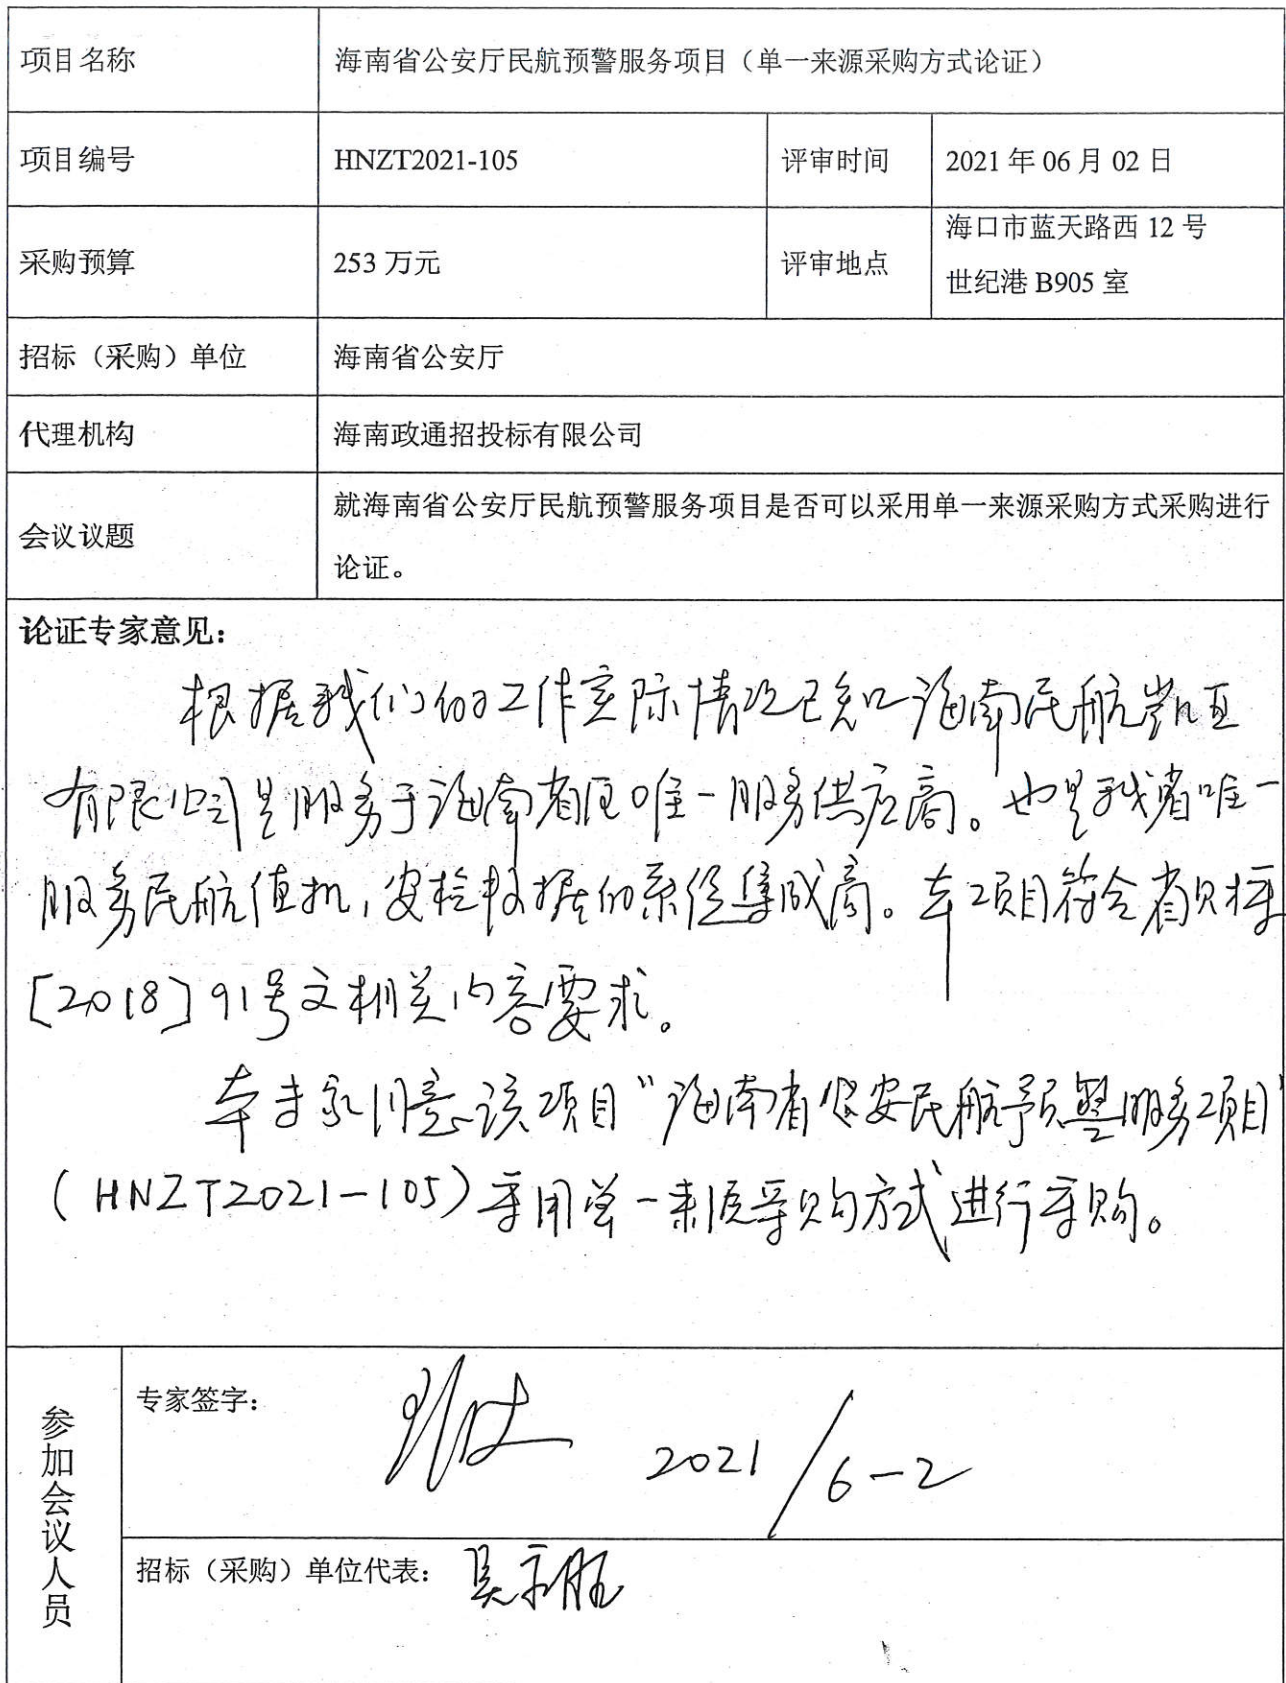 项目名称 海南省公安厅民航预警服务项目（单一来源采购方式论证）
项目编号 HNZT2021-105 评审时间 2021 年 06 月 02 日
采购预算 253 万元 评审地点 海口市蓝天路西 12 号
世纪港 B905 室
招标（采购）单位 海南省公安厅
代理机构 海南政通招投标有限公司
会议议题 就海南省公安厅民航预警服务项目是否可以采用单一来源采购方式采购进行
论证。
论证专家意见：
根据我们的工作实际情况海南民航凯亚
有限公司是服务于海南省唯一服务供应商。也是我省唯一
服务民航值机，安检数据的系统集成商。本项目符合省财采
[2018] 91号文相关内容要求。
本专家同意该项目“海南省公安民航预警服务项目”
（HNZT2021-105）采用单一来源采购方式进行采购。
参加会议人员
专家签字：
2021/6-2
招标（采购）单位代表：